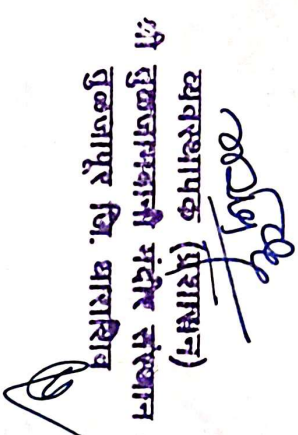 व्यवस्थापक (प्रशासन)
श्री तुळजाभवानी मंदीर संस्थान
तुळजापूर जि. धाराशिव